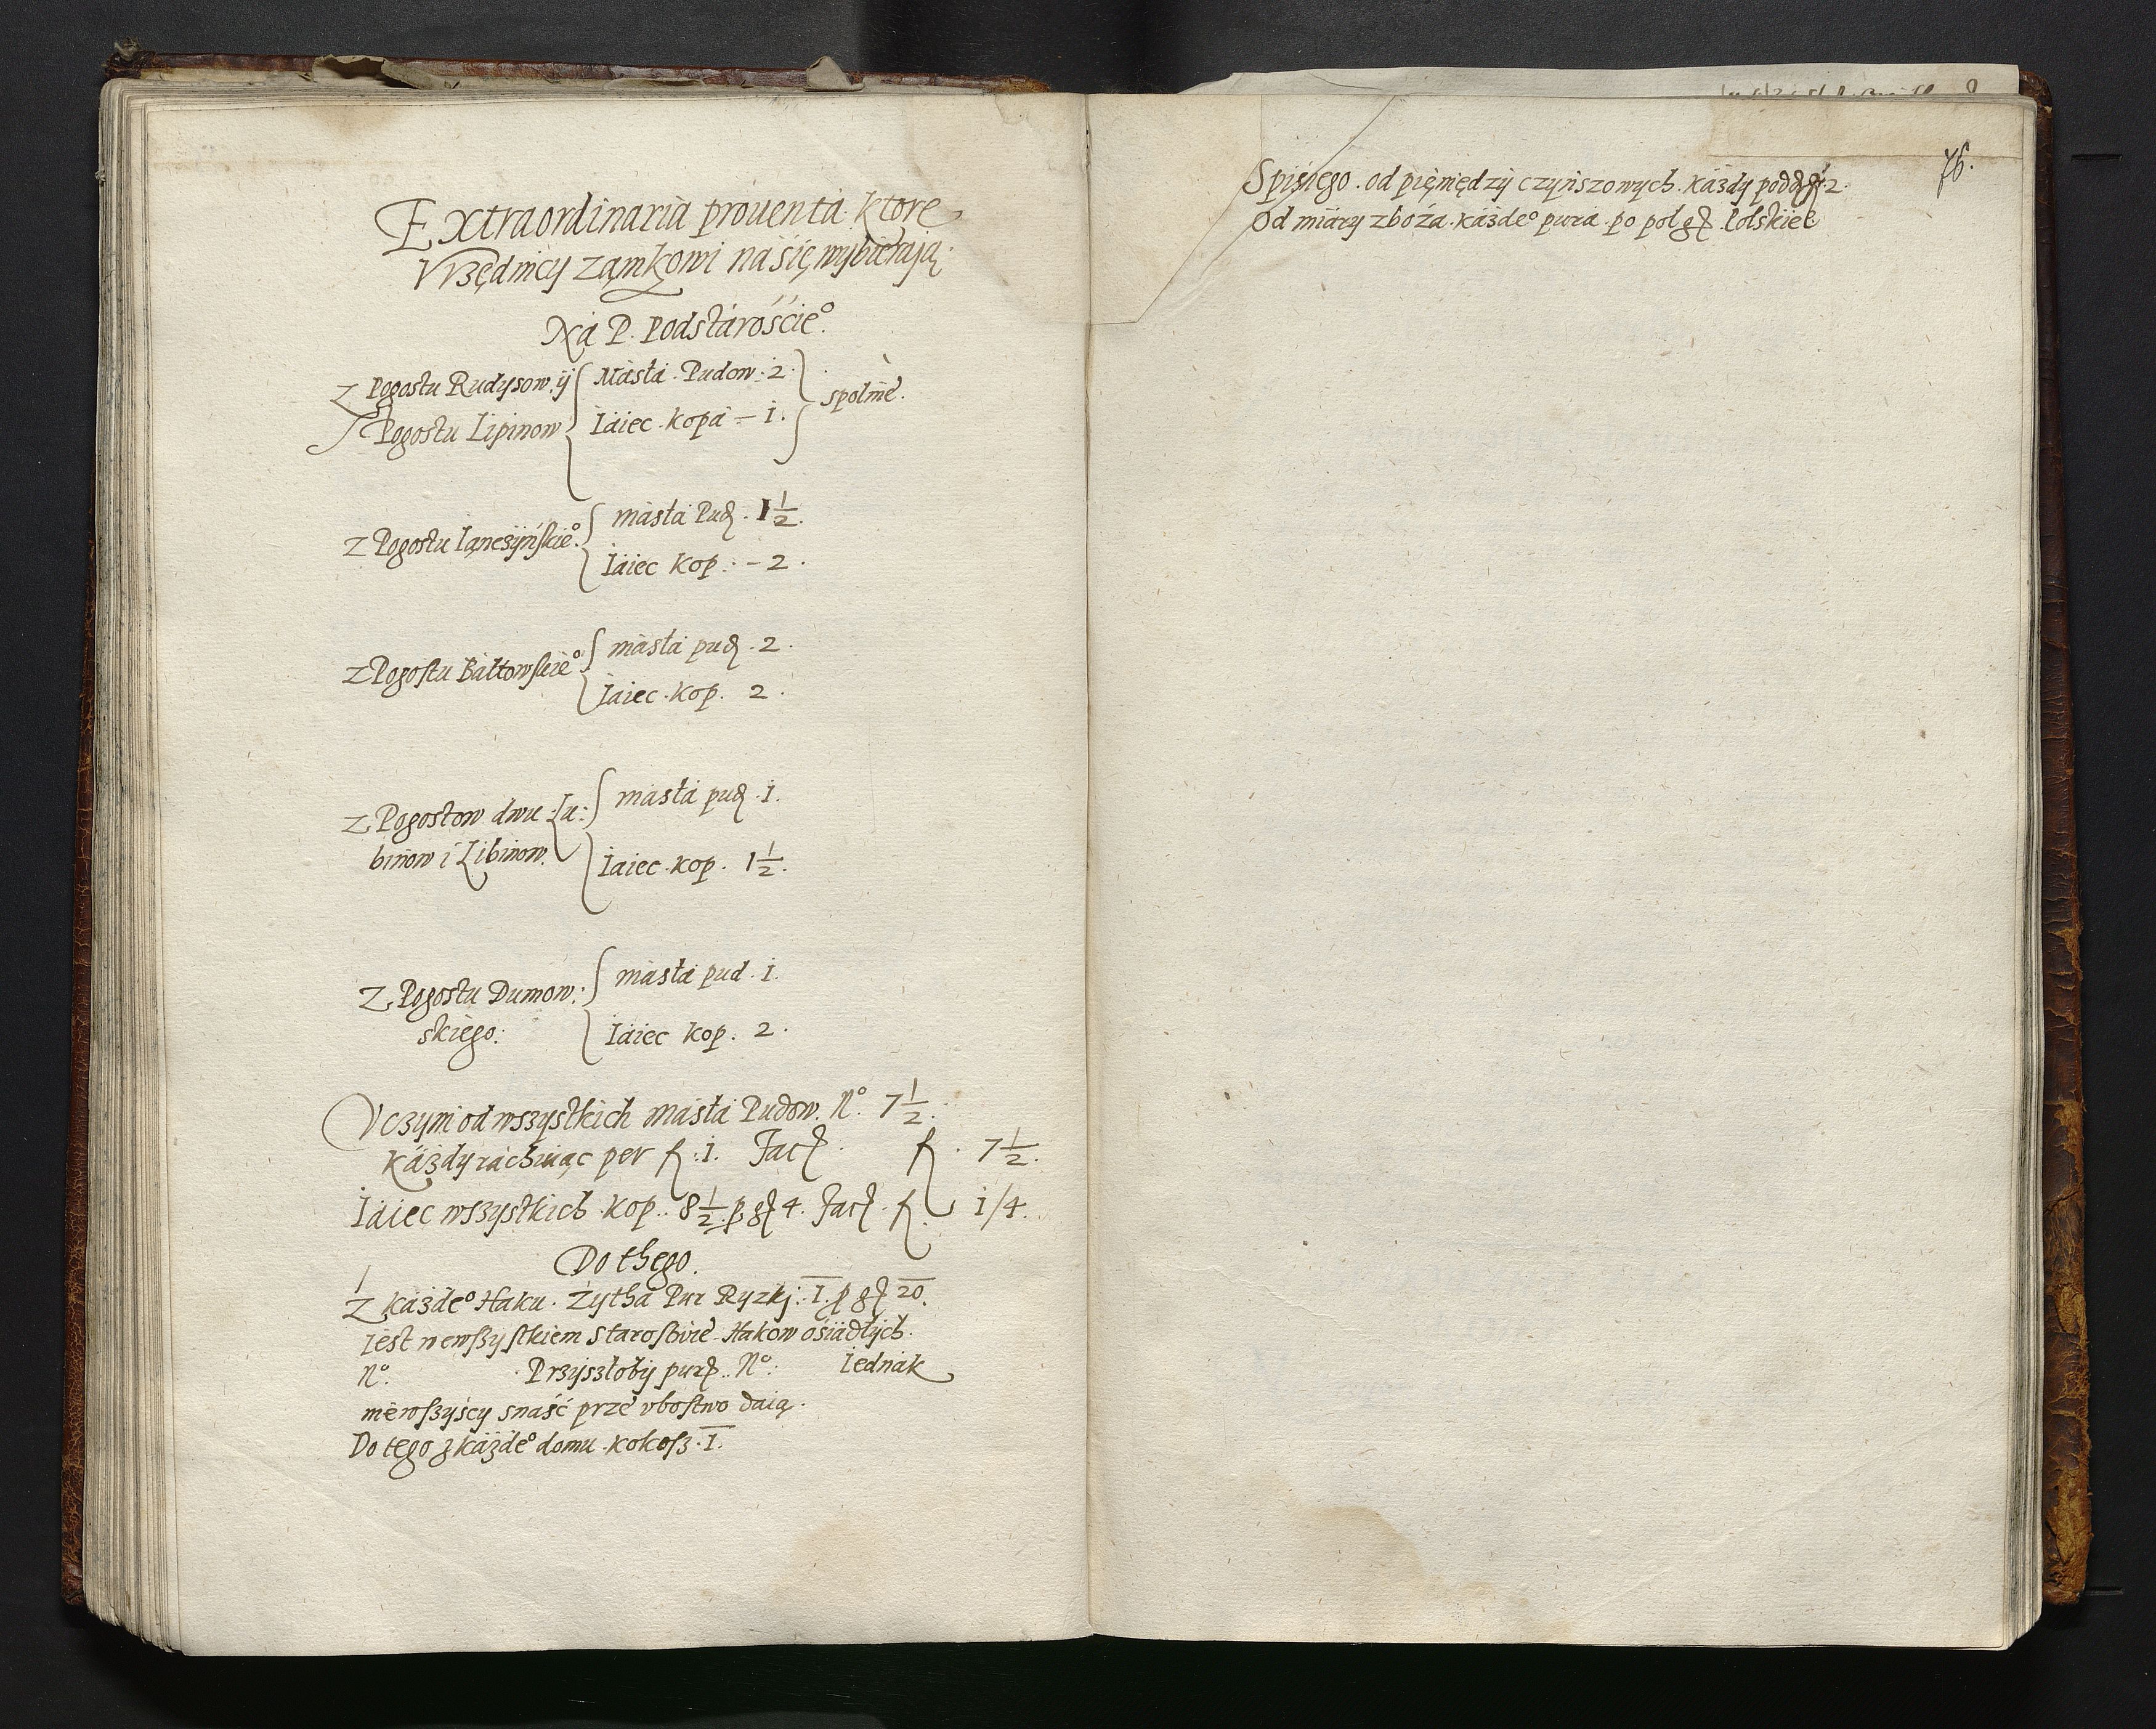 Extraordinaria prouenta ktore
Vrzędnicy zamkowi na się wybieraią.
Na P. Podstaroście°.
Z Pogostu Rudysow. ÿ Masła. Pudow. 2.
Pogostu Lipinow Iaiec. kopa – 1. spolnie.
Z Pogostu masła Pud. 1½.
Iaiec kop. – 2.
Z Pogostu Baltowskie° masła pud. 2.
Iaiec. kop. 2.
Z Pogostow dwu Lu: masła pud. 1.
binow i Libinow. Iaiec. kop. 1½.
Z Pogostu Dumow: masła pud. 1.
skiego: Iaiec kop. 2.
Vczyni od wszystkich masła Pudow. N°. 7½.
Każdy rachuiąc per fl. 1. Facit. fl. 7½.
Iaiec wszystkich. kop. 8½. p gr 4. Facit. fl. 1/4.
Do thego.
Z każde° Haku. Żytha Pur Ryzki. 1. p gr 20.
Iest we wszystkiem Starostwie Hakow osiadłych.
N°. Przyszłoby pur. N°. Iednak
nie wszyscy snaść prze vbostwo daią.
Do tego z każde° domu. kokosz. 1.
76.
Spisnego. od pieniędzy czynszowych. każdy podd. gr 2.
Od miary zboża. każde° pura. po pol gr. Polskie